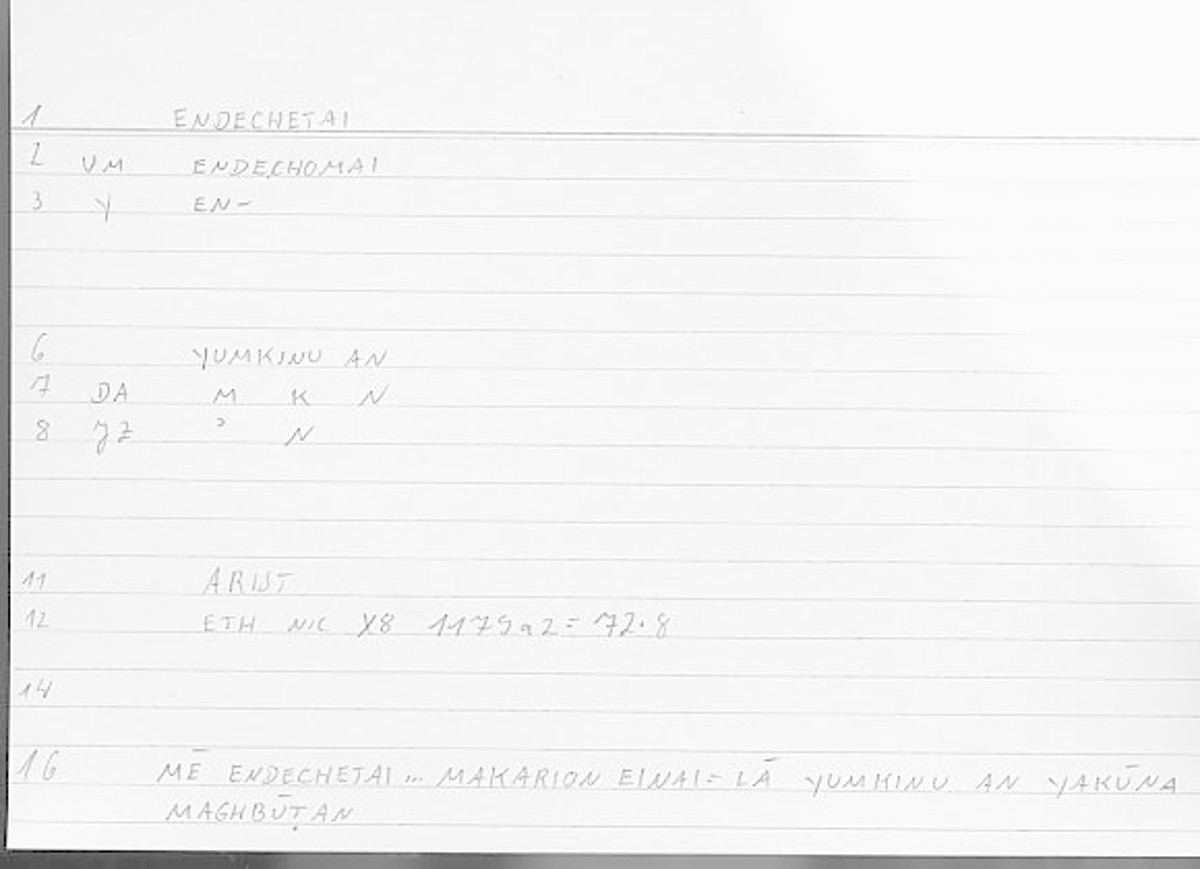 1 ENDECHETAI
2 VM ENDECHOMAI
3 Y EN-
6 YUMKINU AN
7 DA M K N
8 ʾ N
11 ARIST
12 ETH NIC X8 1179a2 = 72.8
14
16 MĒ ENDECHETAI ... MAKARION EINAI = LĀ YUMKINU AN YAKŪNA
MAGHBŪṬAN